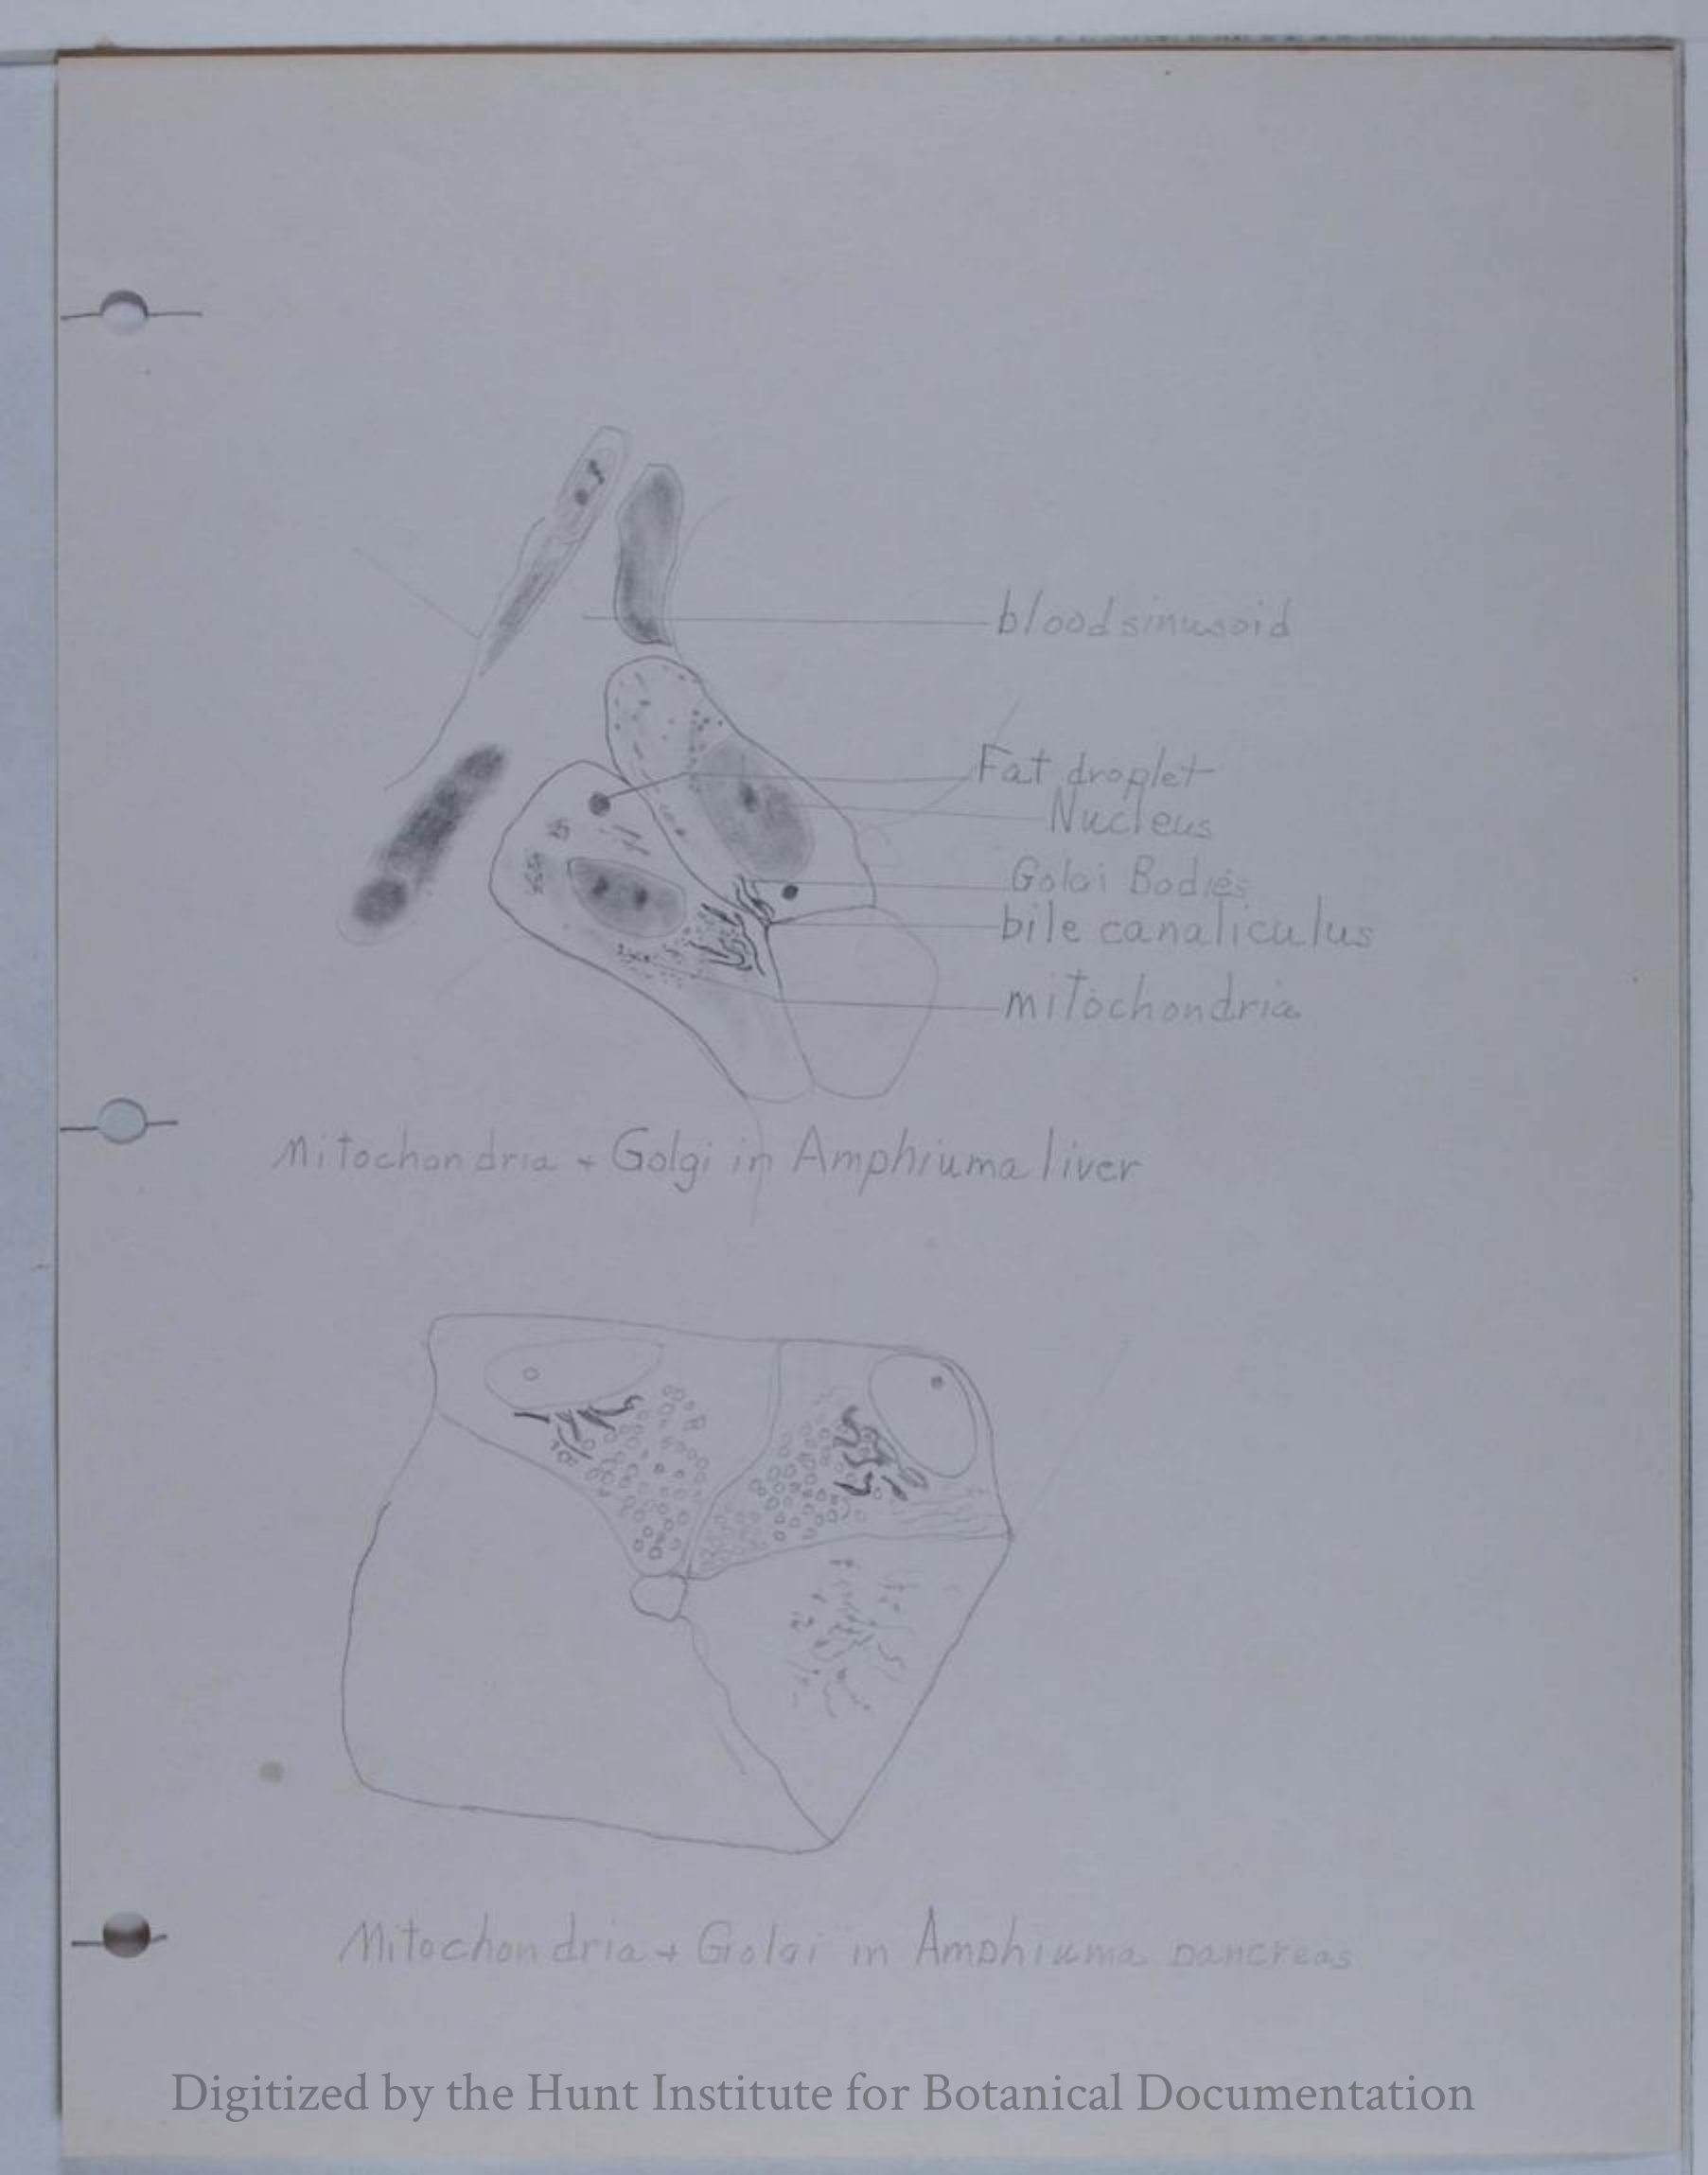 blood sinusoid
Fat droplet
Nucleus
Golgi Bodies
bile canaliculus
mitochondria
Mitochondria + Golgi in Amphiuma liver
Mitochondria + Golgi in Amphiuma pancreas
Digitized by the Hunt Institute for Botanical Documentation